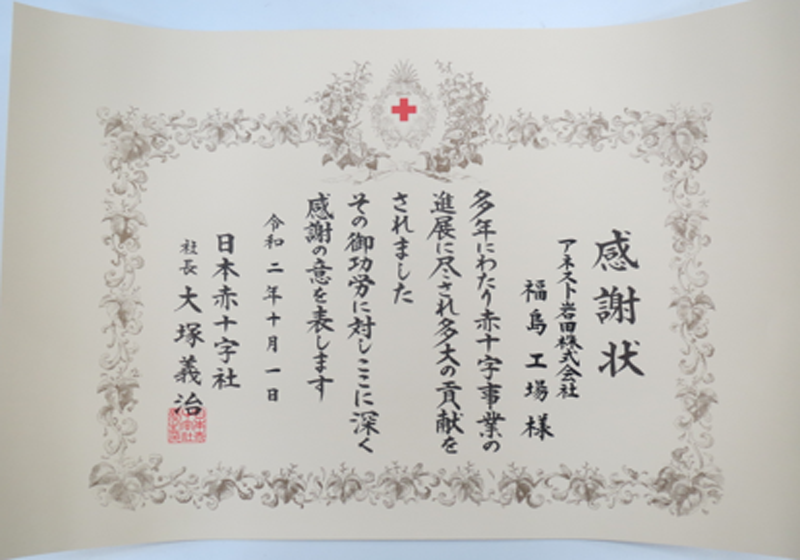 感謝状
アネスト岩田株式会社
福島工場様
多年にわたり赤十字事業の
進展に尽され多大の貢献を
されました
その御功労に対しここに深く
感謝の意を表します
令和二年十月一日
日本赤十字社
社長 大塚義治